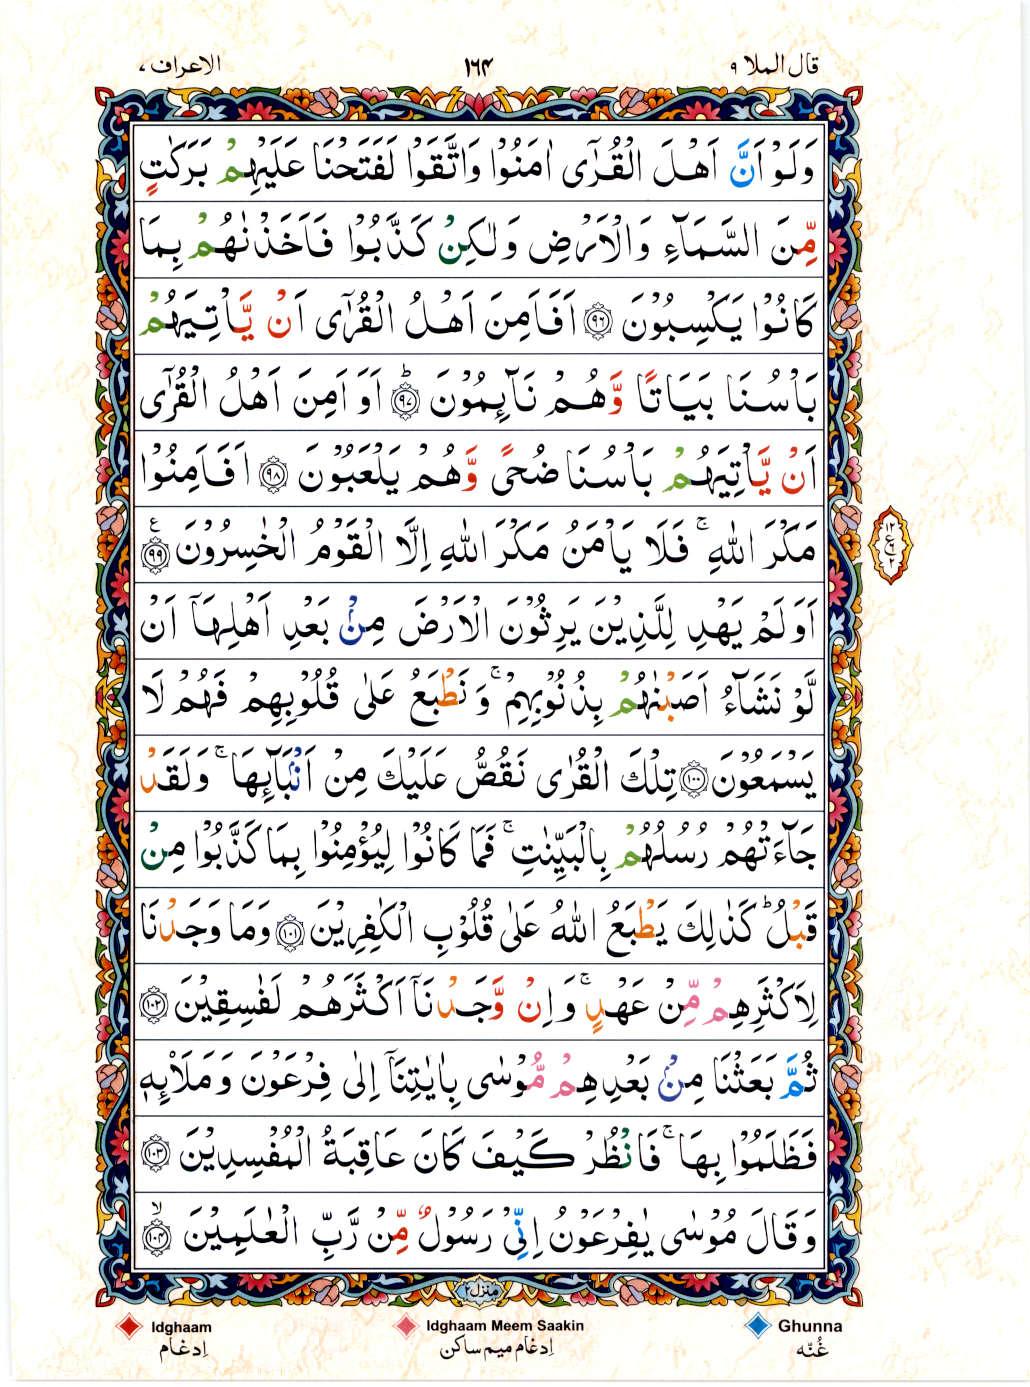 قال الملا ۹
۱۶۴
الاعراف ۷
وَلَوْ اَنَّ اَهْلَ الْقُرٰٓى اٰمَنُوْا وَاتَّقَوْا لَفَتَحْنَا عَلَيْهِمْ بَرَكٰتٍ
مِّنَ السَّمَآءِ وَالْاَرْضِ وَلٰكِنْ كَذَّبُوْا فَاَخَذْنٰهُمْ بِمَا
كَانُوْا يَكْسِبُوْنَ ۝۹۶ اَفَاَمِنَ اَهْلُ الْقُرٰٓى اَنْ يَّاْتِيَهُمْ
بَاْسُنَا بَيَاتًا وَّهُمْ نَآئِمُوْنَ ۝۹۷ؕ اَوَ اَمِنَ اَهْلُ الْقُرٰٓى
اَنْ يَّاْتِيَهُمْ بَاْسُنَا ضُحًى وَّهُمْ يَلْعَبُوْنَ ۝۹۸ اَفَاَمِنُوْا
مَكْرَ اللّٰهِ ۚ فَلَا يَاْمَنُ مَكْرَ اللّٰهِ اِلَّا الْقَوْمُ الْخٰسِرُوْنَ ۝۹۹ ع
۱۲
ع ۶
۲
اَوَلَمْ يَهْدِ لِلَّذِيْنَ يَرِثُوْنَ الْاَرْضَ مِنْۢ بَعْدِ اَهْلِهَاۤ اَنْ
لَّوْ نَشَآءُ اَصَبْنٰهُمْ بِذُنُوْبِهِمْ ۚ وَ نَطْبَعُ عَلٰى قُلُوْبِهِمْ فَهُمْ لَا
يَسْمَعُوْنَ ۝۱۰۰ تِلْكَ الْقُرٰى نَقُصُّ عَلَيْكَ مِنْ اَنْۢبَآئِهَا ۚ وَلَقَدْ
جَآءَتْهُمْ رُسُلُهُمْ بِالْبَيِّنٰتِ ۚ فَمَا كَانُوْا لِيُؤْمِنُوْا بِمَا كَذَّبُوْا مِنْ
قَبْلُ ؕ كَذٰلِكَ يَطْبَعُ اللّٰهُ عَلٰى قُلُوْبِ الْكٰفِرِيْنَ ۝۱۰۱ وَمَا وَجَدْنَا
لِاَكْثَرِهِمْ مِّنْ عَهْدٍ ۚ وَاِنْ وَّجَدْنَاۤ اَكْثَرَهُمْ لَفٰسِقِيْنَ ۝۱۰۲
ثُمَّ بَعَثْنَا مِنْۢ بَعْدِهِمْ مُّوْسٰى بِاٰيٰتِنَاۤ اِلٰى فِرْعَوْنَ وَمَلَا۟ئِهٖ
فَظَلَمُوْا بِهَا ۚ فَانْظُرْ كَيْفَ كَانَ عَاقِبَةُ الْمُفْسِدِيْنَ ۝۱۰۳
وَقَالَ مُوْسٰى يٰفِرْعَوْنُ اِنِّىْ رَسُوْلٌ مِّنْ رَّبِّ الْعٰلَمِيْنَ ۝۱۰۴ لا
منزل ۲
Idghaam
اِدغام
Idghaam Meem Saakin
اِدغام میم ساکن
Ghunna
غُنّه